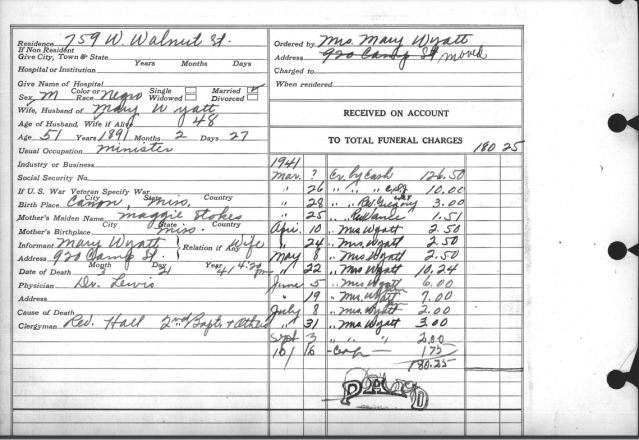 Residence 759 W. Walnut St.
If Non Resident
Give City, Town & State
Years Months Days
Hospital or Institution
Give Name of Hospital
Sex M Color or Race Negro Single Widowed Married Divorced
Wife, Husband of Mary Wyatt
Age of Husband, Wife if Alive 48
Age 51 Years 1891 Months 2 Days 27
Usual Occupation Minister
Industry or Business
Social Security No.
If U.S. War Veteran Specify War
City State Country
Birth Place Canon, Miss.
Mother's Maiden Name Maggie Stokes
City State Country
Mother's Birthplace Miss.
Informant Mary Wyatt Relation if Any Wife
Address 920 Camp St.
Month Day Year
Date of Death 3 21 41 4:20 Pm
Physician Dr. Lewis
Address
Cause of Death
Clergyman Rev. Hall 2nd Bapt. + Others
Ordered by Mrs. Mary Wyatt
Address 920 Camp St moved
Charged to
When rendered
RECEIVED ON ACCOUNT
TO TOTAL FUNERAL CHARGES 180 25
1941
Mar. ? Cr. by Cash 126.50
" 26 " " " 10.00
" 28 " Rev. Gregory 3.00
" 25 " 1.51
Apr. 10 " Mrs Wyatt 2.50
" 24 " Mrs. Wyatt 2.50
May 8 " Mrs Wyatt 2.50
" 22 " Mrs Wyatt 10.24
June 5 " Mrs Wyatt 6.00
" 19 " Mrs. Wyatt 7.00
July 8 " Mrs. Wyatt 2.00
" 31 " Mrs Wyatt 3.00
Sept 3 " " " 2.00
10/ 16 - Cash - 1 75
180.25
PAID